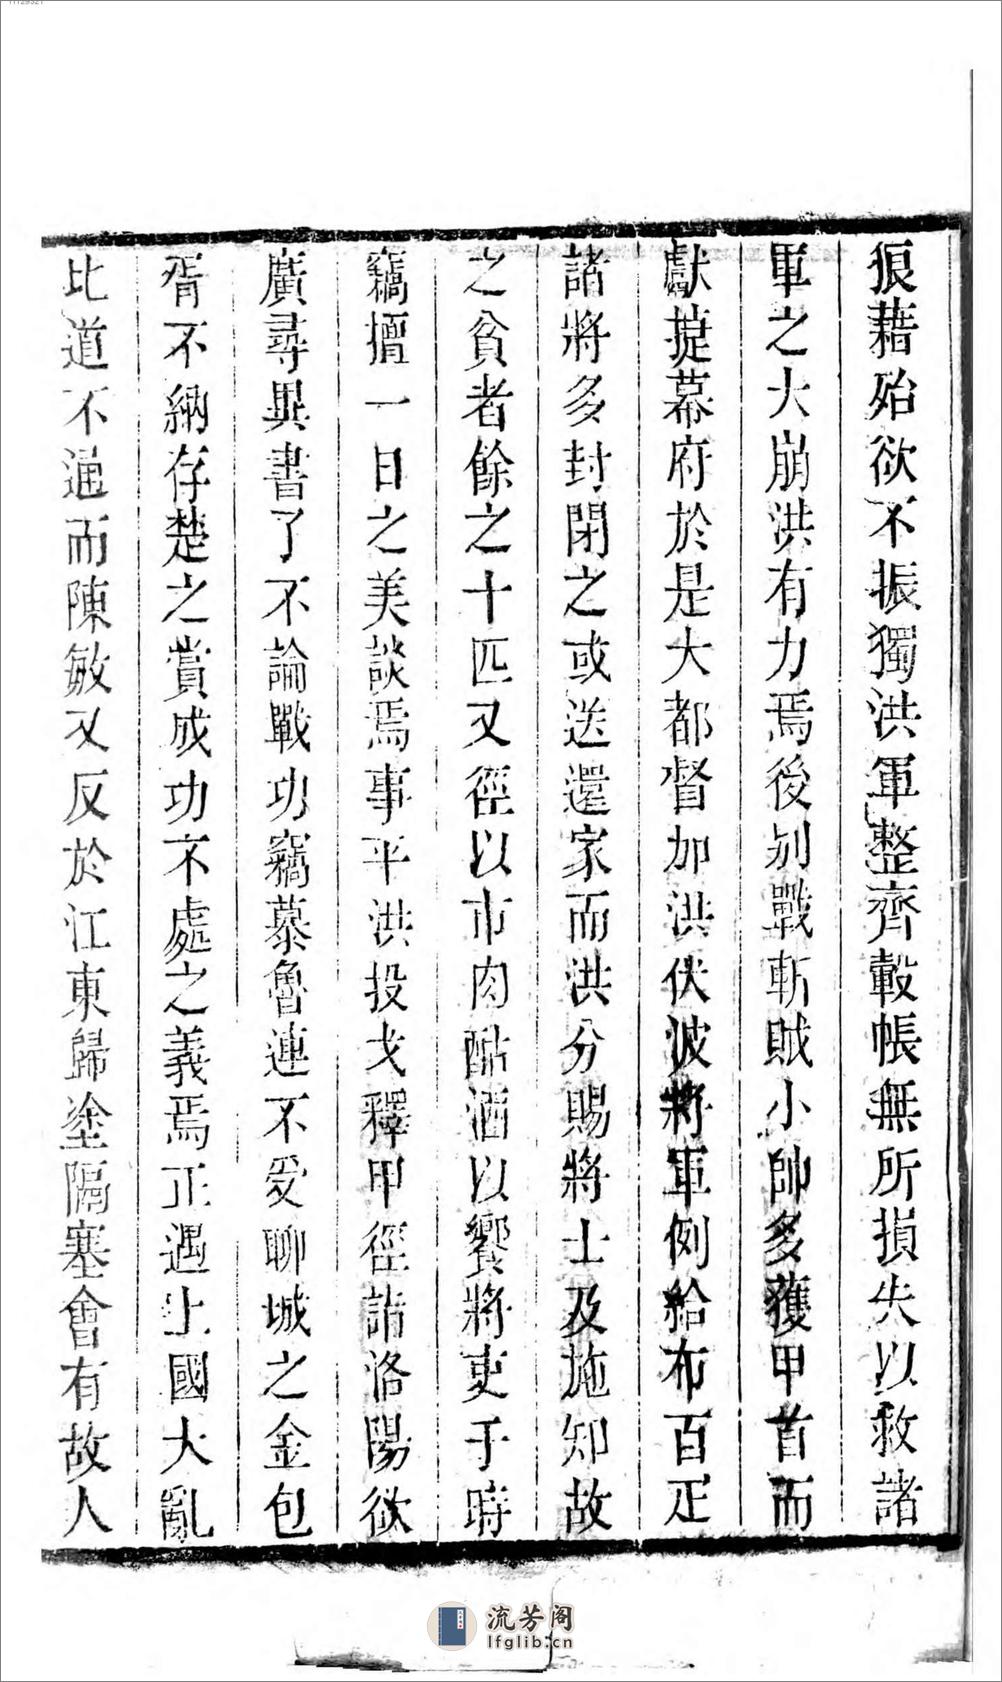 狼藉殆欲不振獨洪軍整齊轂帳無所損失以救諸
軍之大崩洪有力焉後別戰斬賊小帥多獲甲首而
獻捷幕府於是大都督加洪伏波將軍例給布百疋
諸將多封閉之或送還家而洪分賜將士及施知故
之貧者餘之十匹又徑以市肉酤酒以饗將吏于時
竊擅一日之美談焉事平洪投戈釋甲徑詣洛陽欲
廣尋異書了不論戰功竊慕魯連不受聊城之金包
胥不納存楚之賞成功不處之義焉正遇上國大亂
北道不通而陳敏又反於江東歸塗隔塞會有故人
流芳阁
lfglib.cn